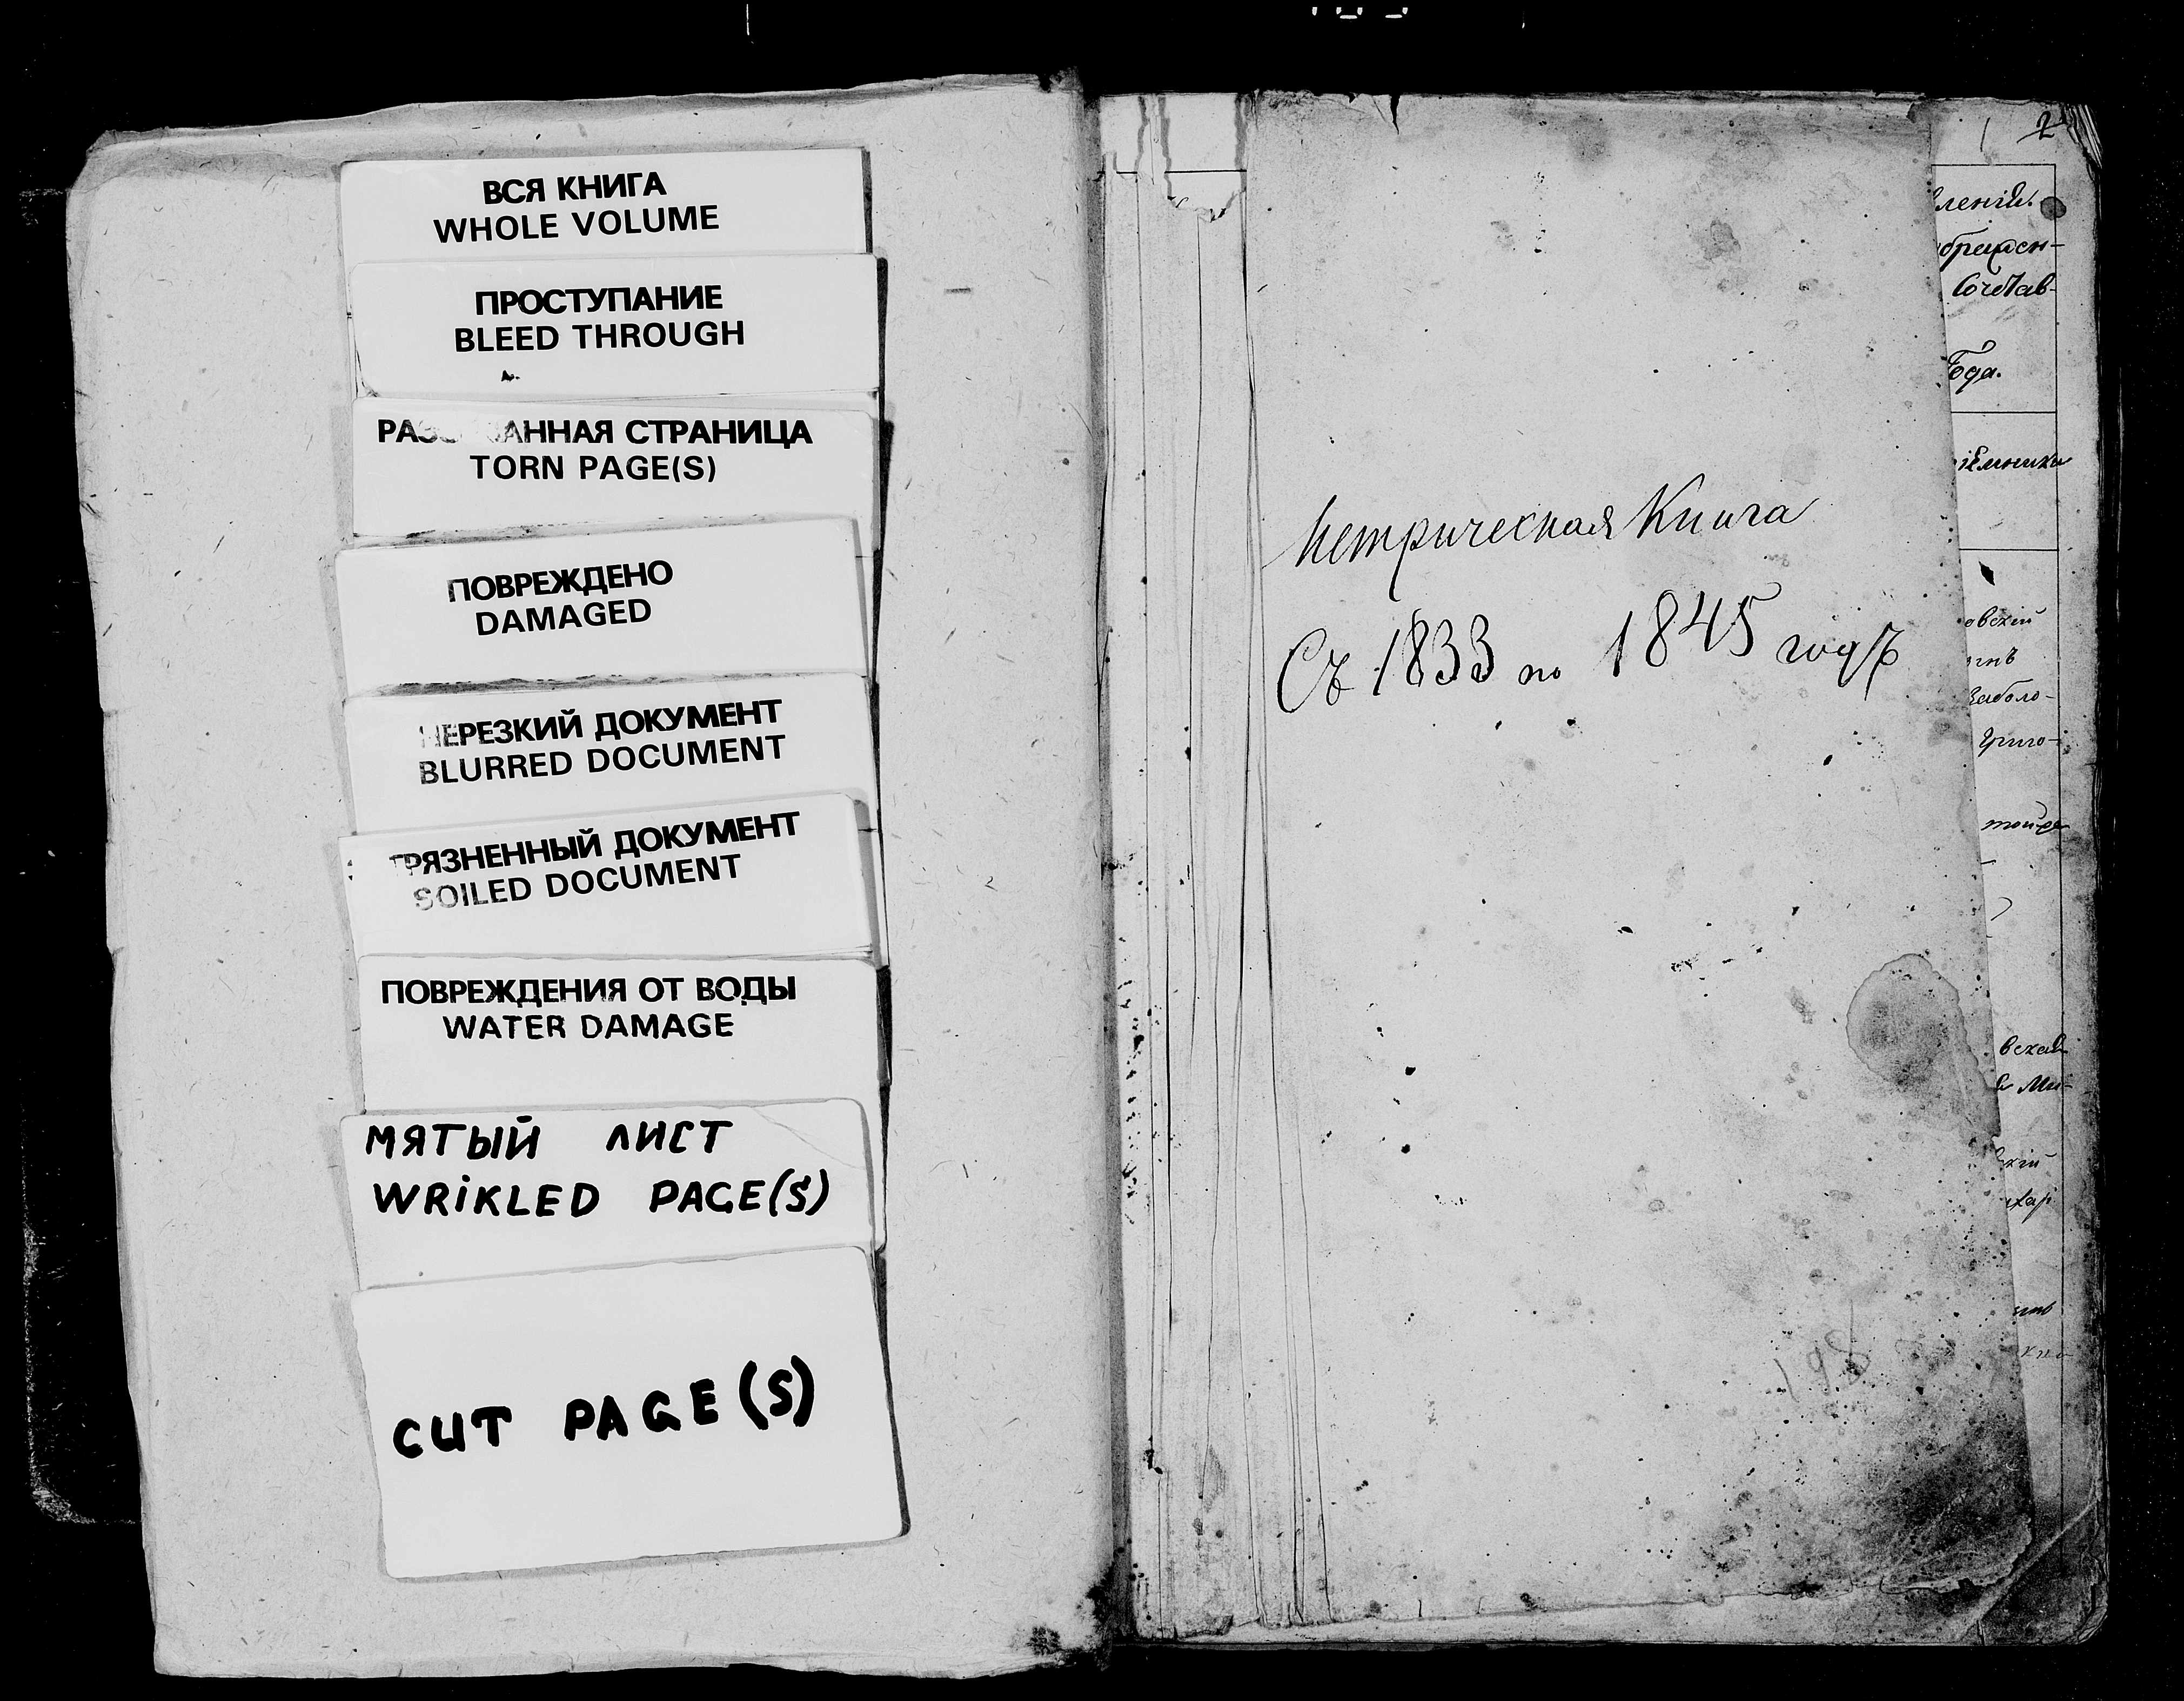 ВСЯ КНИГА
WHOLE VOLUME
ПРОСТУПАНИЕ
BLEED THROUGH
СТРАНИЦА
TORN PAGE(S)
ПОВРЕЖДЕНО
DAMAGED
НЕРЕЗКИЙ ДОКУМЕНТ
BLURRED DOCUMENT
ГРЯЗНЕННЫЙ ДОКУМЕНТ
SOILED DOCUMENT
ПОВРЕЖДЕНИЯ ОТ ВОДЫ
WATER DAMAGE
МЯТЫЙ ЛИСТ
WRIKLED PAGE(S)
CUT PAGE(S)
Метрическая Книга
Съ 1833 по 1845 годъ
198
2
ленiи.
Года.
овскiй
Заболо-
Григо-